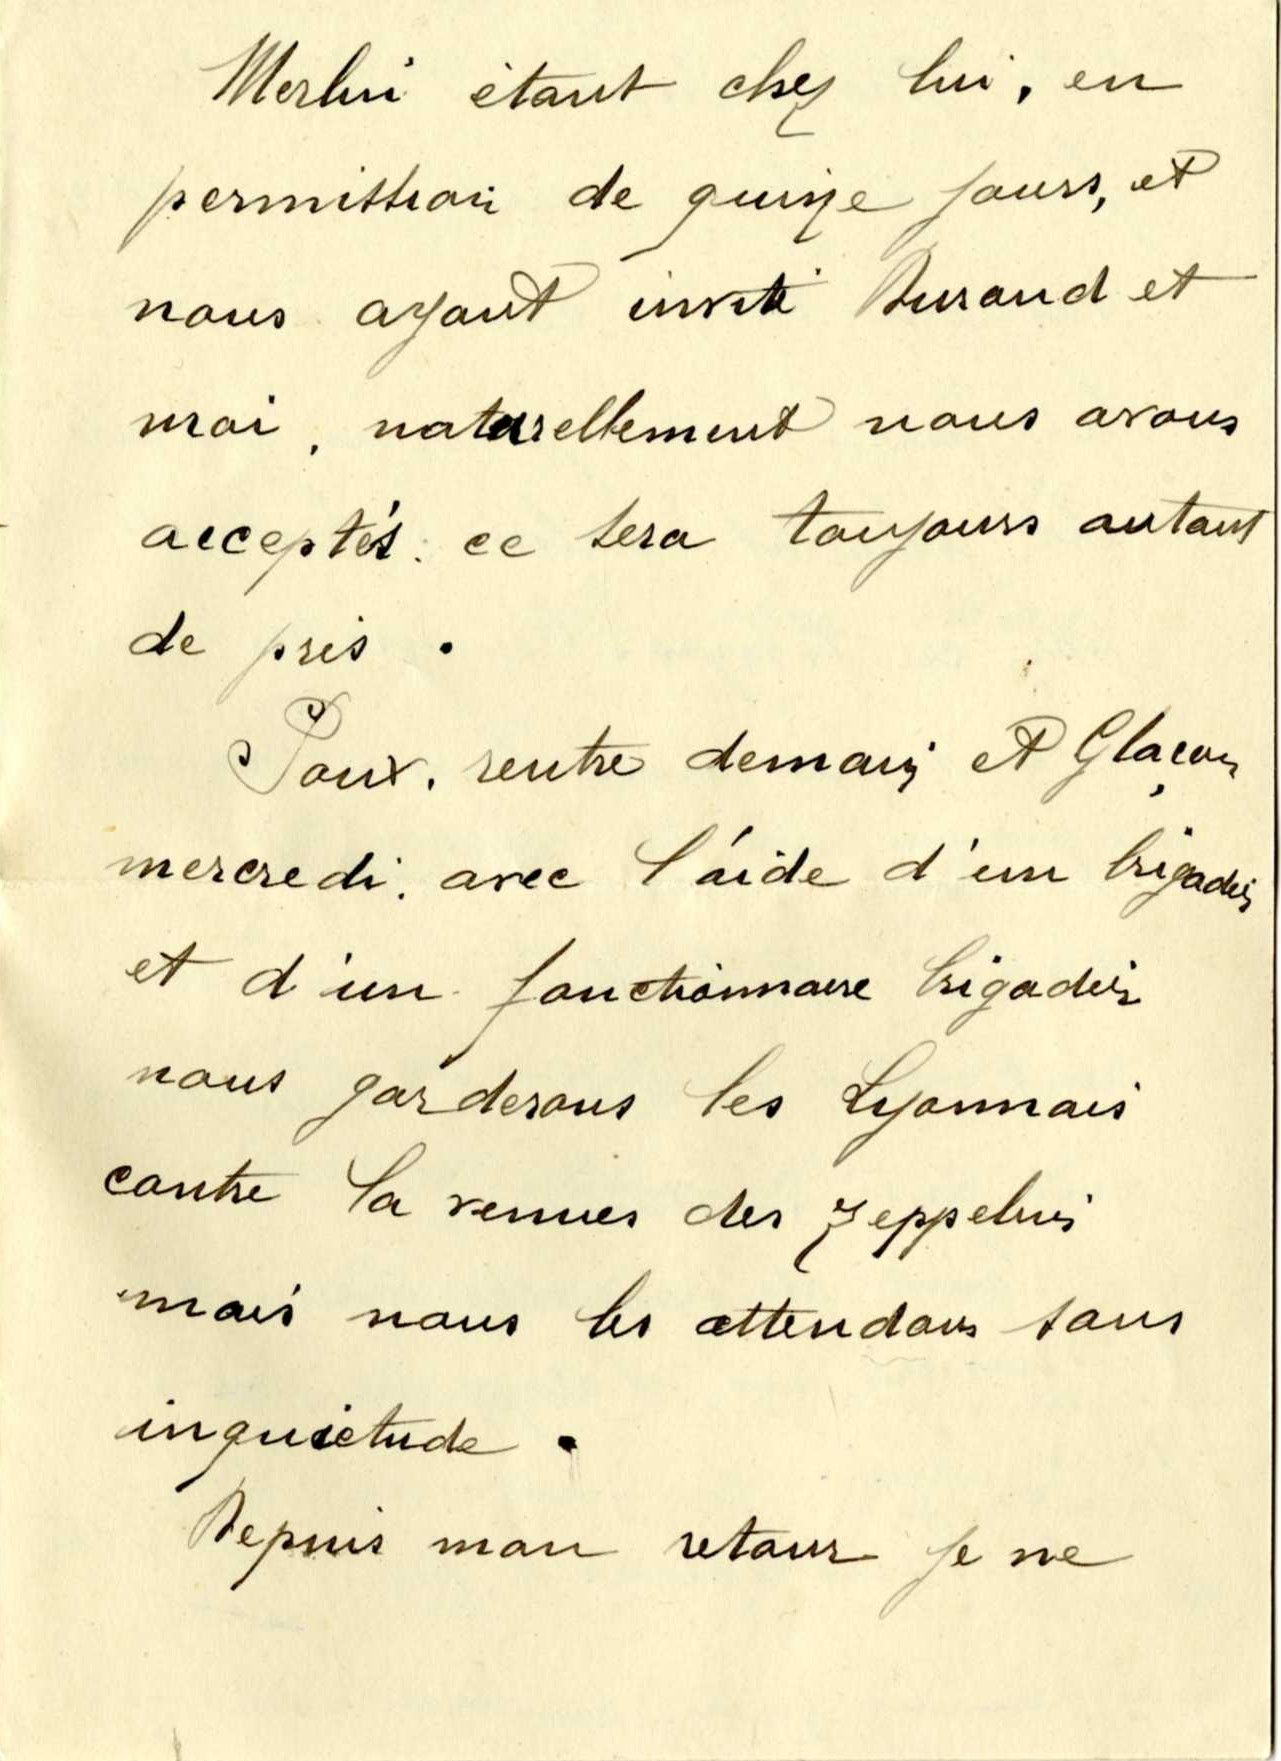 Merlin étant chez lui, en
permission de quinze jours, et
nous ayant invité Durand et
moi, naturellement nous avons
acceptés. ce sera toujours autant
de pris.
Poux, rentre demain et Glaçon
mercredi. avec l'aide d'un brigadier
et d'un fonctionnaire brigadier
nous garderons les Lyonnais
contre la venues des zeppelins
mais nous les attendons sans
inquiètude.
Depuis mon retour je ne